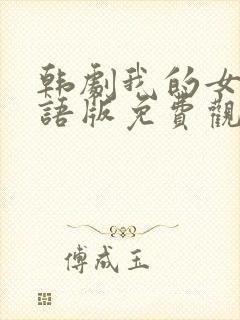 韩劇我的女
語版免費觀
傅成玉